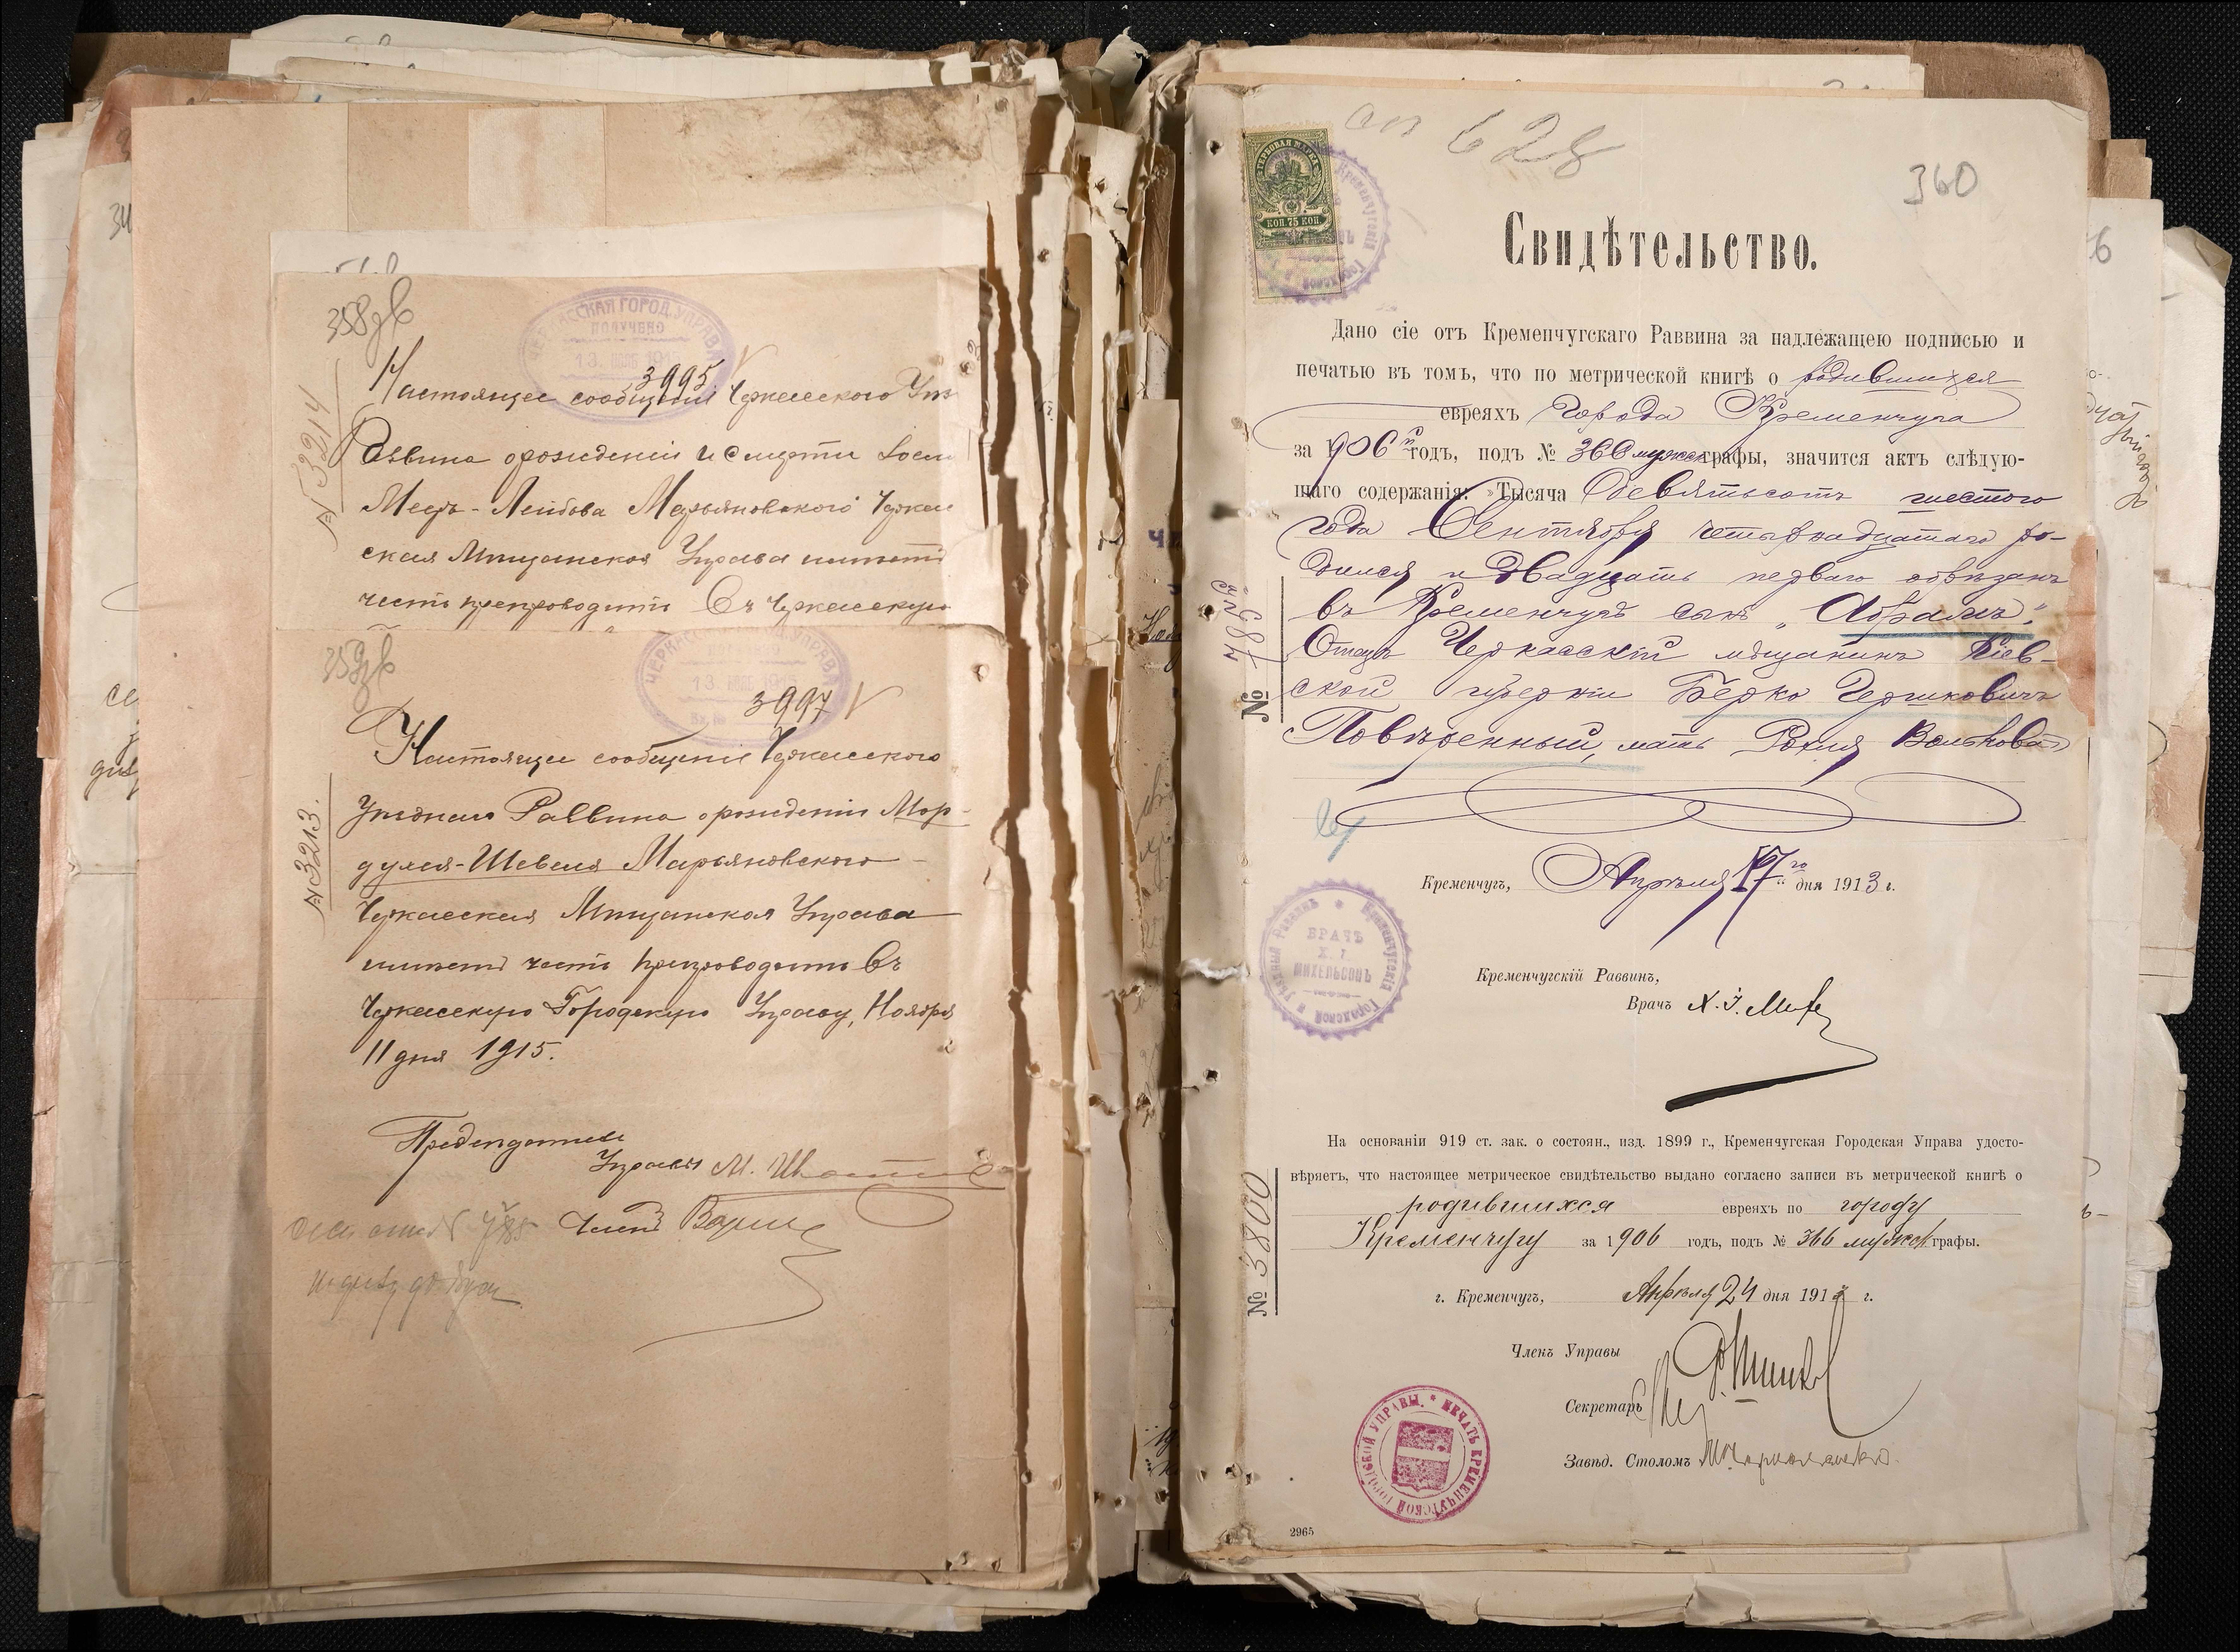 358 зв
ЧЕРКАССКАЯ ГОРОД. УПРАВА
ПОЛУЧЕНО
3995
№ 3214
Настоящее сообщеніе Черкасскаго
Раввина о рожденіи и смерти
Меерь-Лейбова Марьяновскаго Черкас
ская Мѣщанская Управа имѣетъ
честь препроводить въ Черкасскую
359
3997
Настоящее сообщеніе Черкасскаго
Уѣзднаго Раввина о рожденіи Мор-
духа-Шевеля Марьяновскаго
№ 3213.
Черкасская Мѣщанская Управа
имѣетъ честь препроводить въ
Черкасскую Городскую Управу, Ноября
11 дня 1915.
Предсѣдатель
Управы М.
Членъ
628
360
ГЕРБОВАЯ МАРКА
КОП. 75 КОП.
Свидѣтельство.
Дано сіе отъ Кременчугскаго Раввина за надлежащею подписью и
печатью въ томъ, что по метрической книгѣ о родившихся
евреяхъ города Кременчуга
за 1906й годъ, подъ № 366 мужск графы, значится актъ слѣдую-
щаго содержанія: „Тысяча девятьсотъ шестого
года Сентября четырнадцатаго ро-
дился и двадцать перваго обрѣзанъ
въ Кременчугѣ сынъ „Абрамъ".
Отецъ Черкасскій мѣщанинъ Кіев-
ской губерніи Берко Гершковичъ
Повѣренный, мать Рохля Вольковна
Кременчугъ, Апрѣля 17го дня 1913 г.
ВРАЧЪ
Х. І.
МИХЕЛЬСОНЪ
Кременчугскій Раввинъ,
Врачъ Х. І. Мих
На основаніи 919 ст. зак. о состоян., изд. 1899 г., Кременчугская Городская Управа удосто-
вѣряетъ, что настоящее метрическое свидѣтельство выдано согласно записи въ метрической книгѣ о
родившихся евреяхъ по городу
Кременчугу за 1906 годъ, подъ № 366 мужск графы.
№ 3800
г. Кременчугъ, Апрѣля 24 дня 1913 г.
Членъ Управы
Секретарь
Завѣд. Столомъ
ПЕЧАТЬ КРЕМЕНЧУГСКОЙ ГОРОДСКОЙ УПРАВЫ.
2965